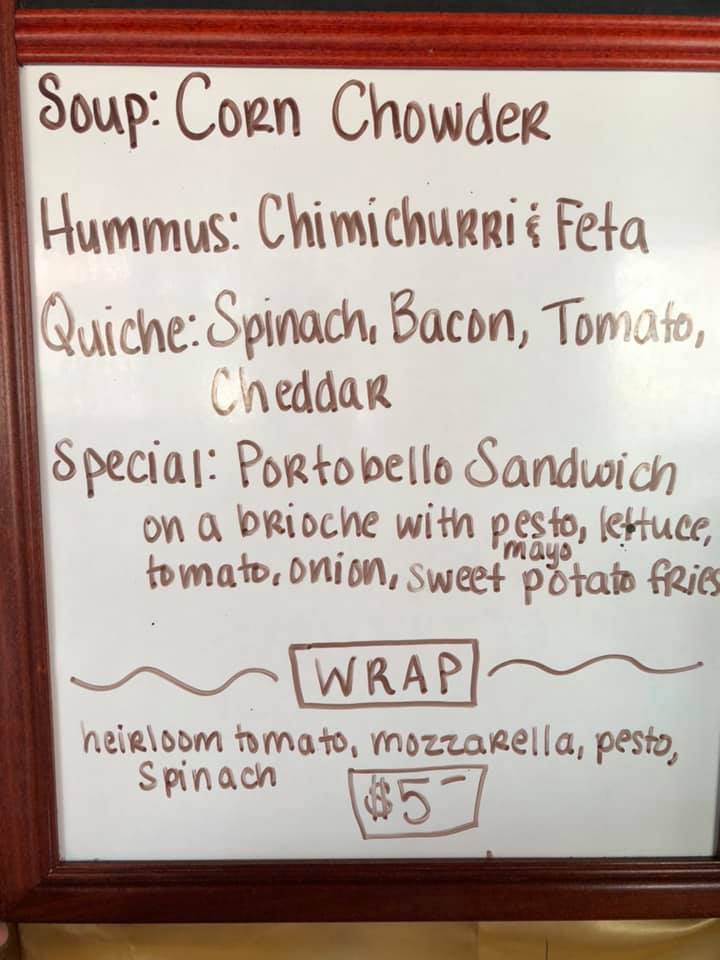 Soup: Corn Chowder
Hummus: Chimichurri & Feta
Quiche: Spinach, Bacon, Tomato,
Cheddar
Special: Portobello Sandwich
on a brioche with pesto, lettuce,
mayo
tomato, onion, sweet potato fries
WRAP
heirloom tomato, mozzarella, pesto,
Spinach
$5-